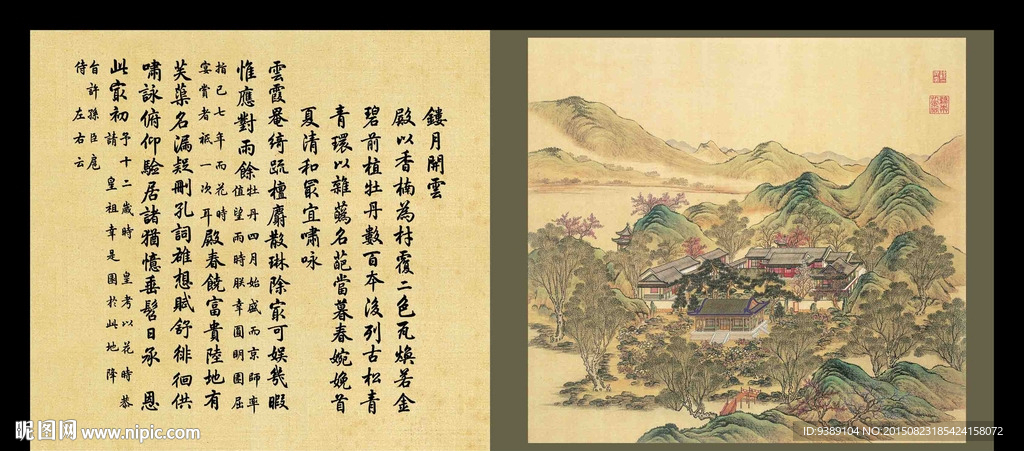 鏤月開雲
殿以香楠為材覆二色瓦煥若金
碧前植牡丹數百本後列古松青
青環以雜蘤名葩當暮春婉娩首
夏清和最宜嘯咏
雲霞罨綺疏檀麝散琳除最可娛幾暇
惟應對雨餘牡丹四月始盛而京師率值望雨時朕幸圓明園屈
指已七年而花時宴賞者祇一次耳殿春饒富貴陸地有
芙蕖名漏疑刪孔詞雄想賦舒徘徊供
嘯詠俯仰驗居諸猶憶垂髫日承 恩
此最初予十二歲時 皇考以花時恭請 皇祖幸是園於此地降
旨許孫臣扈侍左右云
昵图网 www.nipic.com
ID:9389104 NO:20150823185424158072